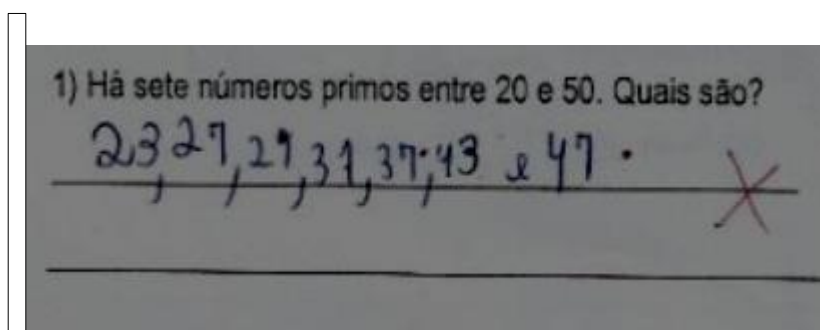 1) Há sete números primos entre 20 e 50. Quais são?
23, 27, 29, 31, 37, 43 e 47.